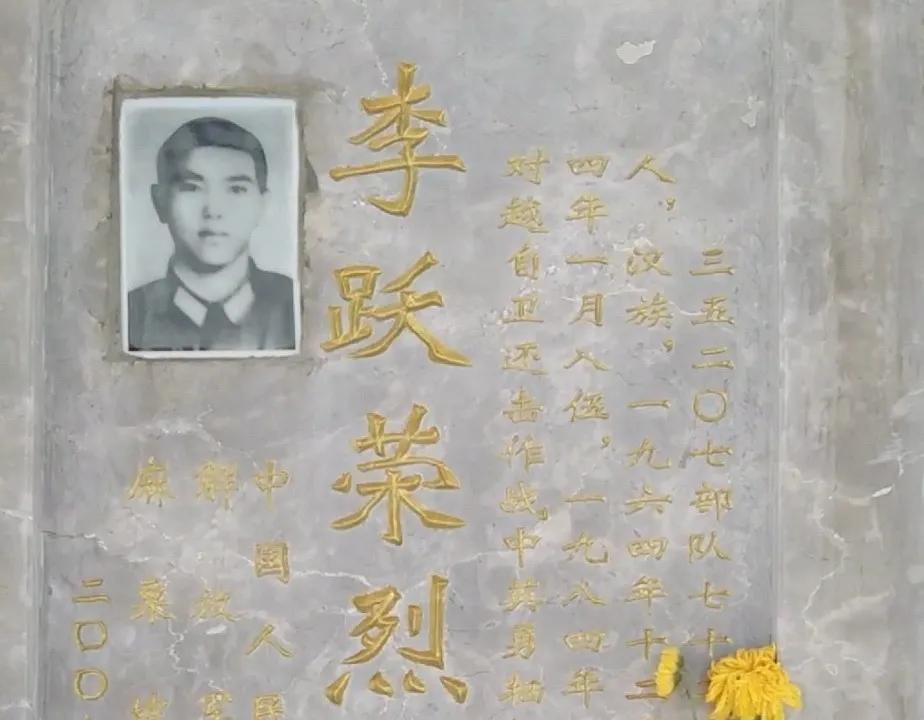 三五二〇七部队七十
人，汉族，一九六四年十二
四年一月入伍，一九八四年
对越自卫还击作战中英勇牺
李跃荣烈
中国人民
解放
麻栗坡
二〇〇